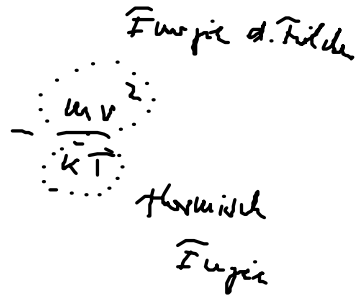 Energie d. Teilchen
- mv²
kT
thermisch
Energie